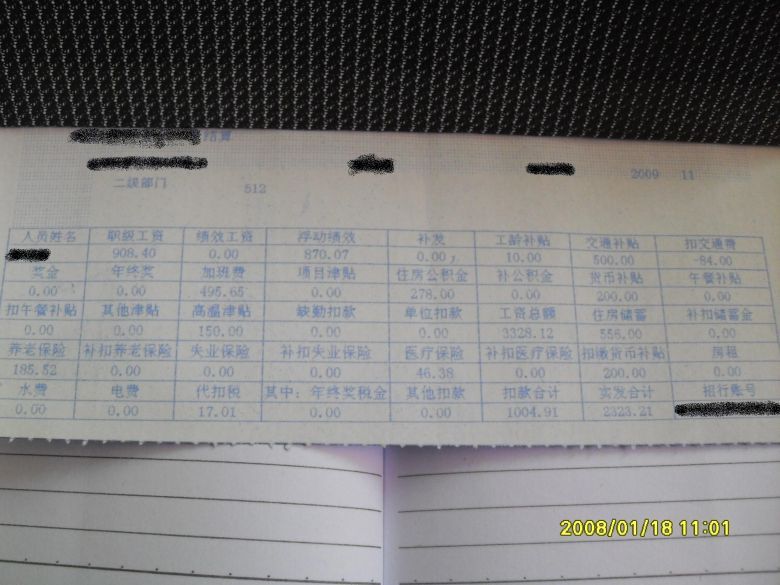 结算
二级部门 512 2009 11
人员姓名 职级工资 绩效工资 浮动绩效 补发 工龄补贴 交通补贴 扣交通费
908.40 0.00 870.07 0.00 10.00 500.00 -84.00
奖金 年终奖 加班费 项目津贴 住房公积金 补公积金 货币补贴 午餐补贴
0.00 0.00 495.65 0.00 278.00 0.00 200.00 0.00
扣午餐补贴 其他津贴 高温津贴 缺勤扣款 单位扣款 工资总额 住房储蓄 补扣储蓄金
0.00 0.00 150.00 0.00 0.00 3328.12 556.00 0.00
养老保险 补扣养老保险 失业保险 补扣失业保险 医疗保险 补扣医疗保险 扣缴货币补贴 房租
185.52 0.00 0.00 0.00 46.38 0.00 200.00 0.00
水费 电费 代扣税 其中：年终奖税金 其他扣款 扣款合计 实发合计 招行账号
0.00 0.00 17.01 0.00 0.00 1004.91 2323.21
2008/01/18 11:01